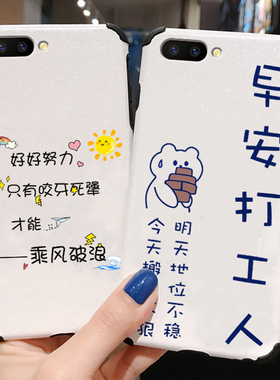 好好努力
只有咬牙死犟
才能
——乘风破浪
早安打工人
明天地位不稳
今天搬
狠